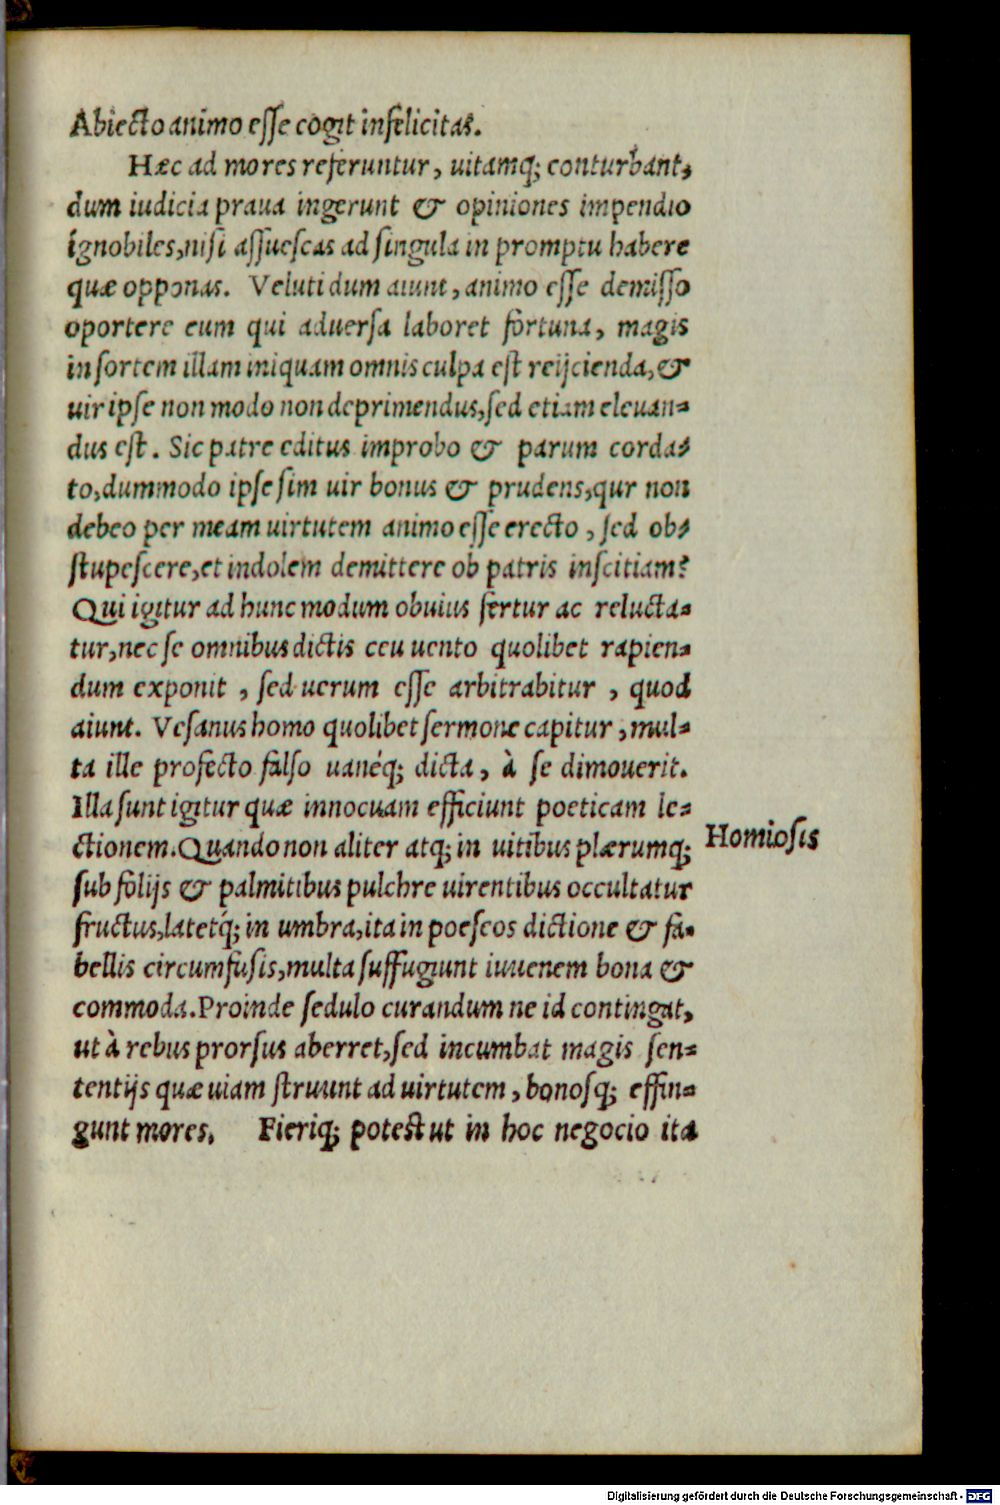 Abiecto animo esse cogit infelicitas.
Hæc ad mores referuntur, uitamq; conturbant,
dum iudicia praua ingerunt & opiniones impendio
ignobiles, nisi assuescas ad singula in promptu habere
quæ opponas. Veluti dum aiunt, animo esse demisso
oportere eum qui aduersa laboret fortuna, magis
in sortem illam iniquam omnis culpa est reijcienda, &
uir ipse non modo non deprimendus, sed etiam eleuan-
dus est. Sic patre editus improbo & parum corda-
to, dummodo ipse sim uir bonus & prudens, qur non
debeo per meam uirtutem animo esse erecto, sed ob-
stupescere, et indolem demittere ob patris inscitiam?
Qui igitur ad hunc modum obuius fertur ac relucta-
tur, nec se omnibus dictis ceu uento quolibet rapien-
dum exponit, sed uerum esse arbitrabitur, quod
aiunt. Vesanus homo quolibet sermone capitur, mul-
ta ille profecto falso uanéq; dicta, à se dimouerit.
Illa sunt igitur quæ innocuam efficiunt poeticam le-
ctionem. Quando non aliter atq; in uitibus plærumq;
Homiosis
sub folijs & palmitibus pulchre uirentibus occultatur
fructus, latetq́; in umbra, ita in poeseos dictione & fa-
bellis circumfusis, multa suffugiunt iuuenem bona &
commoda. Proinde sedulo curandum ne id contingat,
ut à rebus prorsus aberret, sed incumbat magis sen-
tentijs quæ uiam struunt ad uirtutem, bonosq; effin-
gunt mores. Fieriq; potest ut in hoc negocio ita
Digitalisierung gefördert durch die Deutsche Forschungsgemeinschaft - DFG